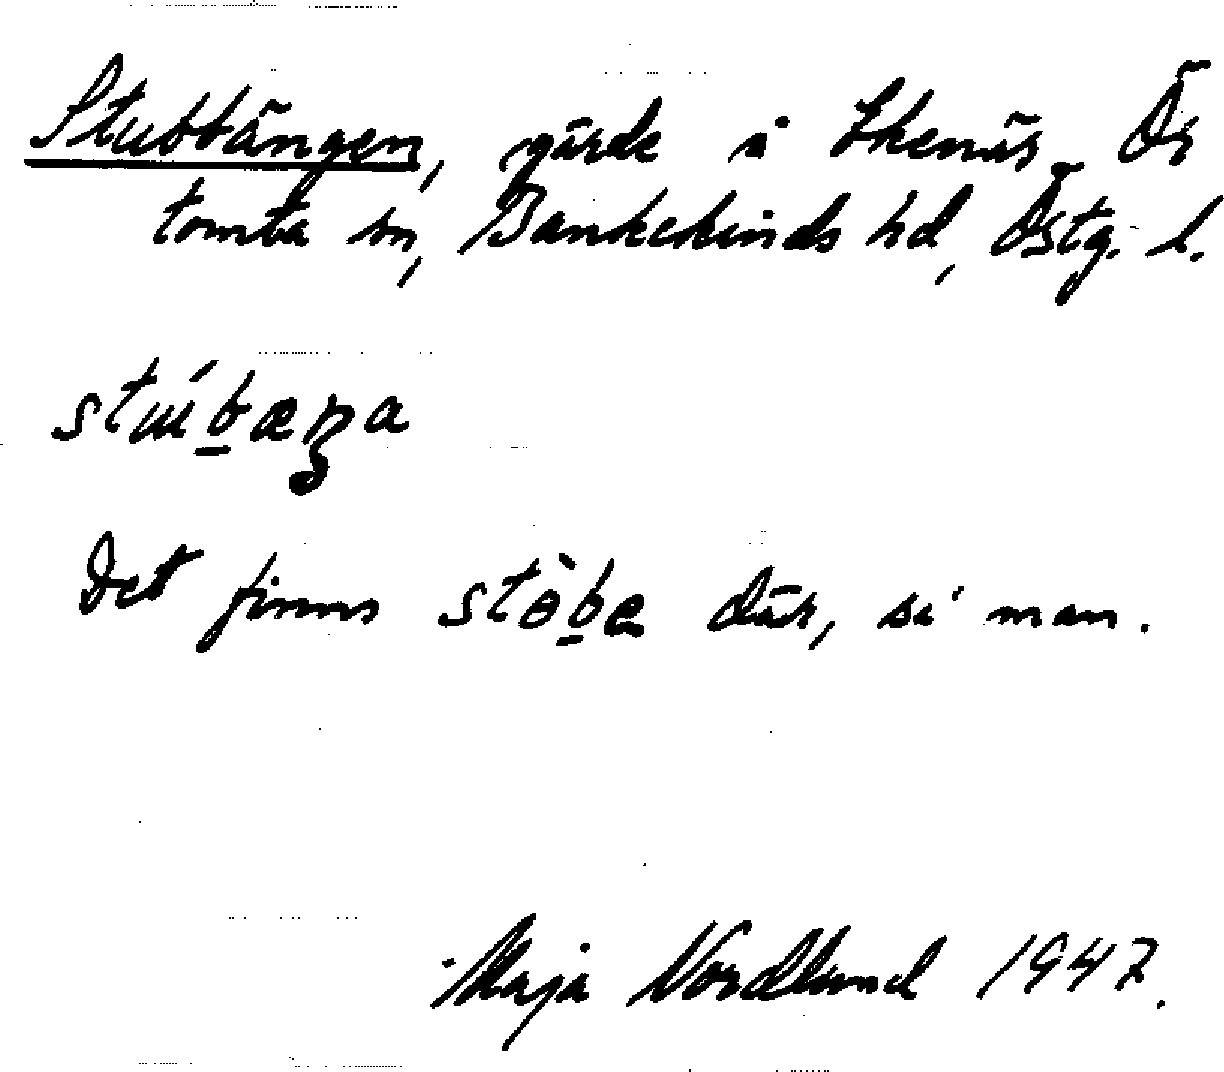 Stubbängen, gärde å Ekenäs Ör
tomta sn, Bankekinds hd, Östg. l.
stuíb̠æŋa
Det finns stöb̠a där, si' man.
Maja Nordlund 1947.